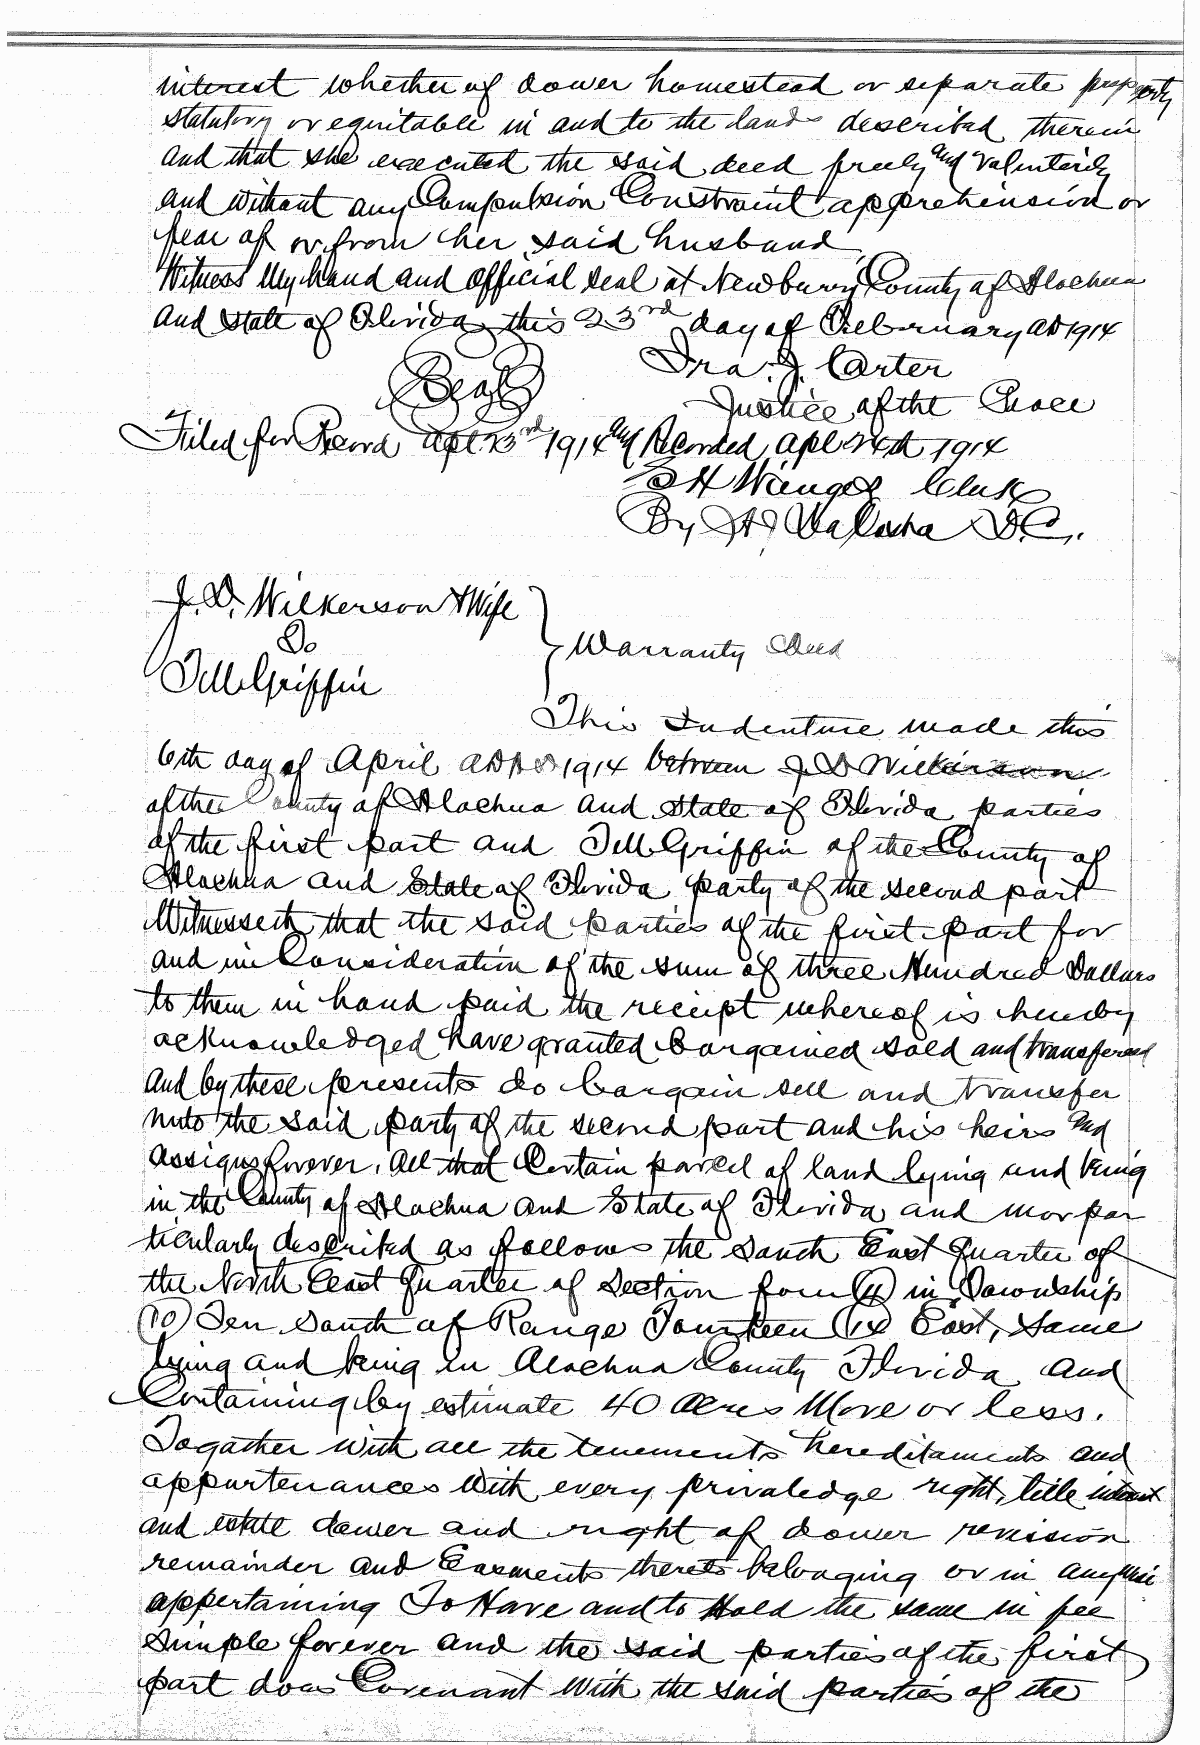 interest whether of dower homestead or separate property
statutory or equitable in and to the lands described therein
and that she executed the said deed freely and voluntarily
and without any Compulsion Constraint apprehension or
fear of or from her said husband
Witness My hand and official seal at Newburry County of Alachua
and State of Florida this 23rd day of February AD 1914
Seal Ira. J. Carter
Justice of the Peace
Filed for Record Apl 23rd 1914 and Recorded Apl 24th 1914
S H Wienges Clerk
By H D.C.
J. D. Wilkerson & Wife
To
Warranty Deed
Tell Griffin
This Indenture made this
6th day of April AD 1914 between J D Wilkerson
of the County of Alachua and State of Florida parties
of the first part and Tell Griffin of the County of
Alachua and State of Florida party of the second part
Witnesseth that the said parties of the first part for
and in Consideration of the sum of three Hundred Dollars
to them in hand paid the receipt whereof is hereby
acknowledged have granted bargained sold and transfered
and by these presents do bargain sell and transfer
unto the said party of the second part and his heirs and
assigns forever. All that Certain parcel of land lying and being
in the County of Alachua and State of Florida and mor par
ticularly described as follows the South East Quarter of
the North East Quarter of Section four (4) in Township
(10) Ten South of Range Fourteen (14) East, Same
lying and being in Alachua County Florida and
Containing by estimate 40 Acres More or less.
Togather with all the tenements hereditaments and
appurtenances with every privaledge right, title interest
and estate dower and right of dower revision
remainder and Easments thereto belonging or in anywise
appertaining To Have and to Hold the same in fee
Simple forever and the said parties of the first
part does Covenant with the said parties of the